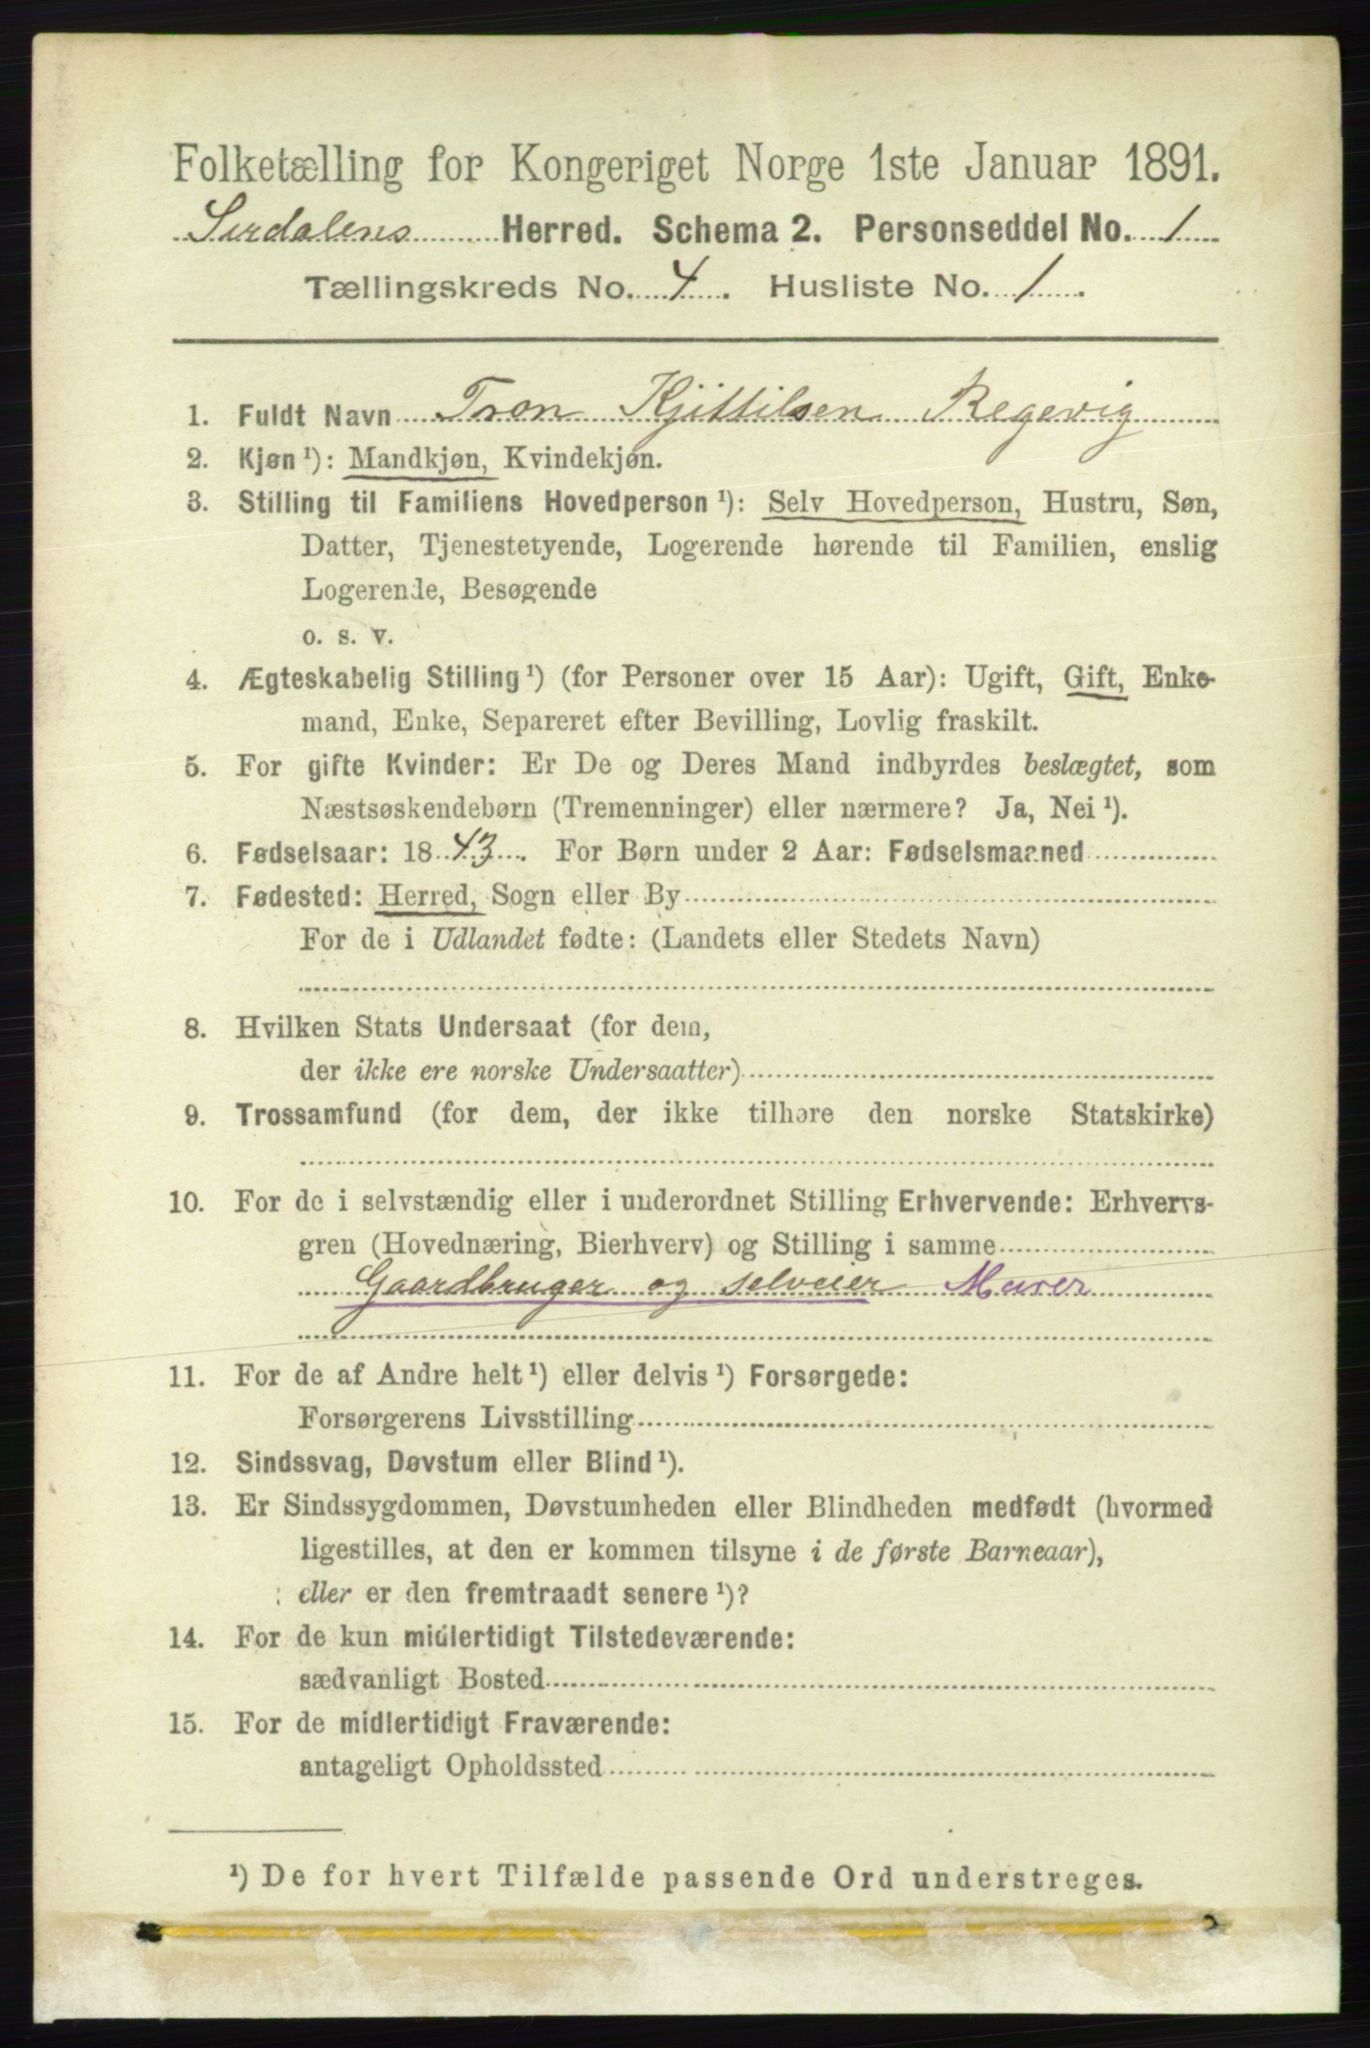 Folketælling for Kongeriget Norge 1ste Januar 1891.
Sirdalens Herred. Schema 2. Personseddel No. 1
Tællingskreds No. 4. Husliste No. 1.
1. Fuldt Navn Tron Kjittilsen Regevig
2. Kjøn ¹): Mandkjøn, Kvindekjøn.
3. Stilling til Familiens Hovedperson ¹): Selv Hovedperson, Hustru, Søn,
Datter, Tjenestetyende, Logerende hørende til Familien, enslig
Logerende, Besøgende
o. s. v.
4. Ægteskabelig Stilling ¹) (for Personer over 15 Aar): Ugift, Gift, Enke-
mand, Enke, Separeret efter Bevilling, Lovlig fraskilt.
5. For gifte Kvinder: Er De og Deres Mand indbyrdes beslægtet, som
Næstsøskendebørn (Tremenninger) eller nærmere? Ja, Nei ¹).
6. Fødselsaar: 1843. For Børn under 2 Aar: Fødselsmaaned
7. Fødested: Herred, Sogn eller By
For de i Udlandet fødte: (Landets eller Stedets Navn)
8. Hvilken Stats Undersaat (for dem,
der ikke ere norske Undersaatter)
9. Trossamfund (for dem, der ikke tilhøre den norske Statskirke)
10. For de i selvstændig eller i underordnet Stilling Erhvervende: Erhvervs-
gren (Hovednæring, Bierhverv) og Stilling i samme
Gaardbruger og selveier Murer
11. For de af Andre helt ¹) eller delvis ¹) Forsørgede:
Forsørgerens Livsstilling
12. Sindssvag, Døvstum eller Blind ¹).
13. Er Sindssygdommen, Døvstumheden eller Blindheden medfødt (hvormed
ligestilles, at den er kommen tilsyne i de første Barneaar),
eller er den fremtraadt senere ¹)?
14. For de kun midlertidigt Tilstedeværende:
sædvanligt Bosted
15. For de midlertidigt Fraværende:
antageligt Opholdssted
¹) De for hvert Tilfælde passende Ord understreges.